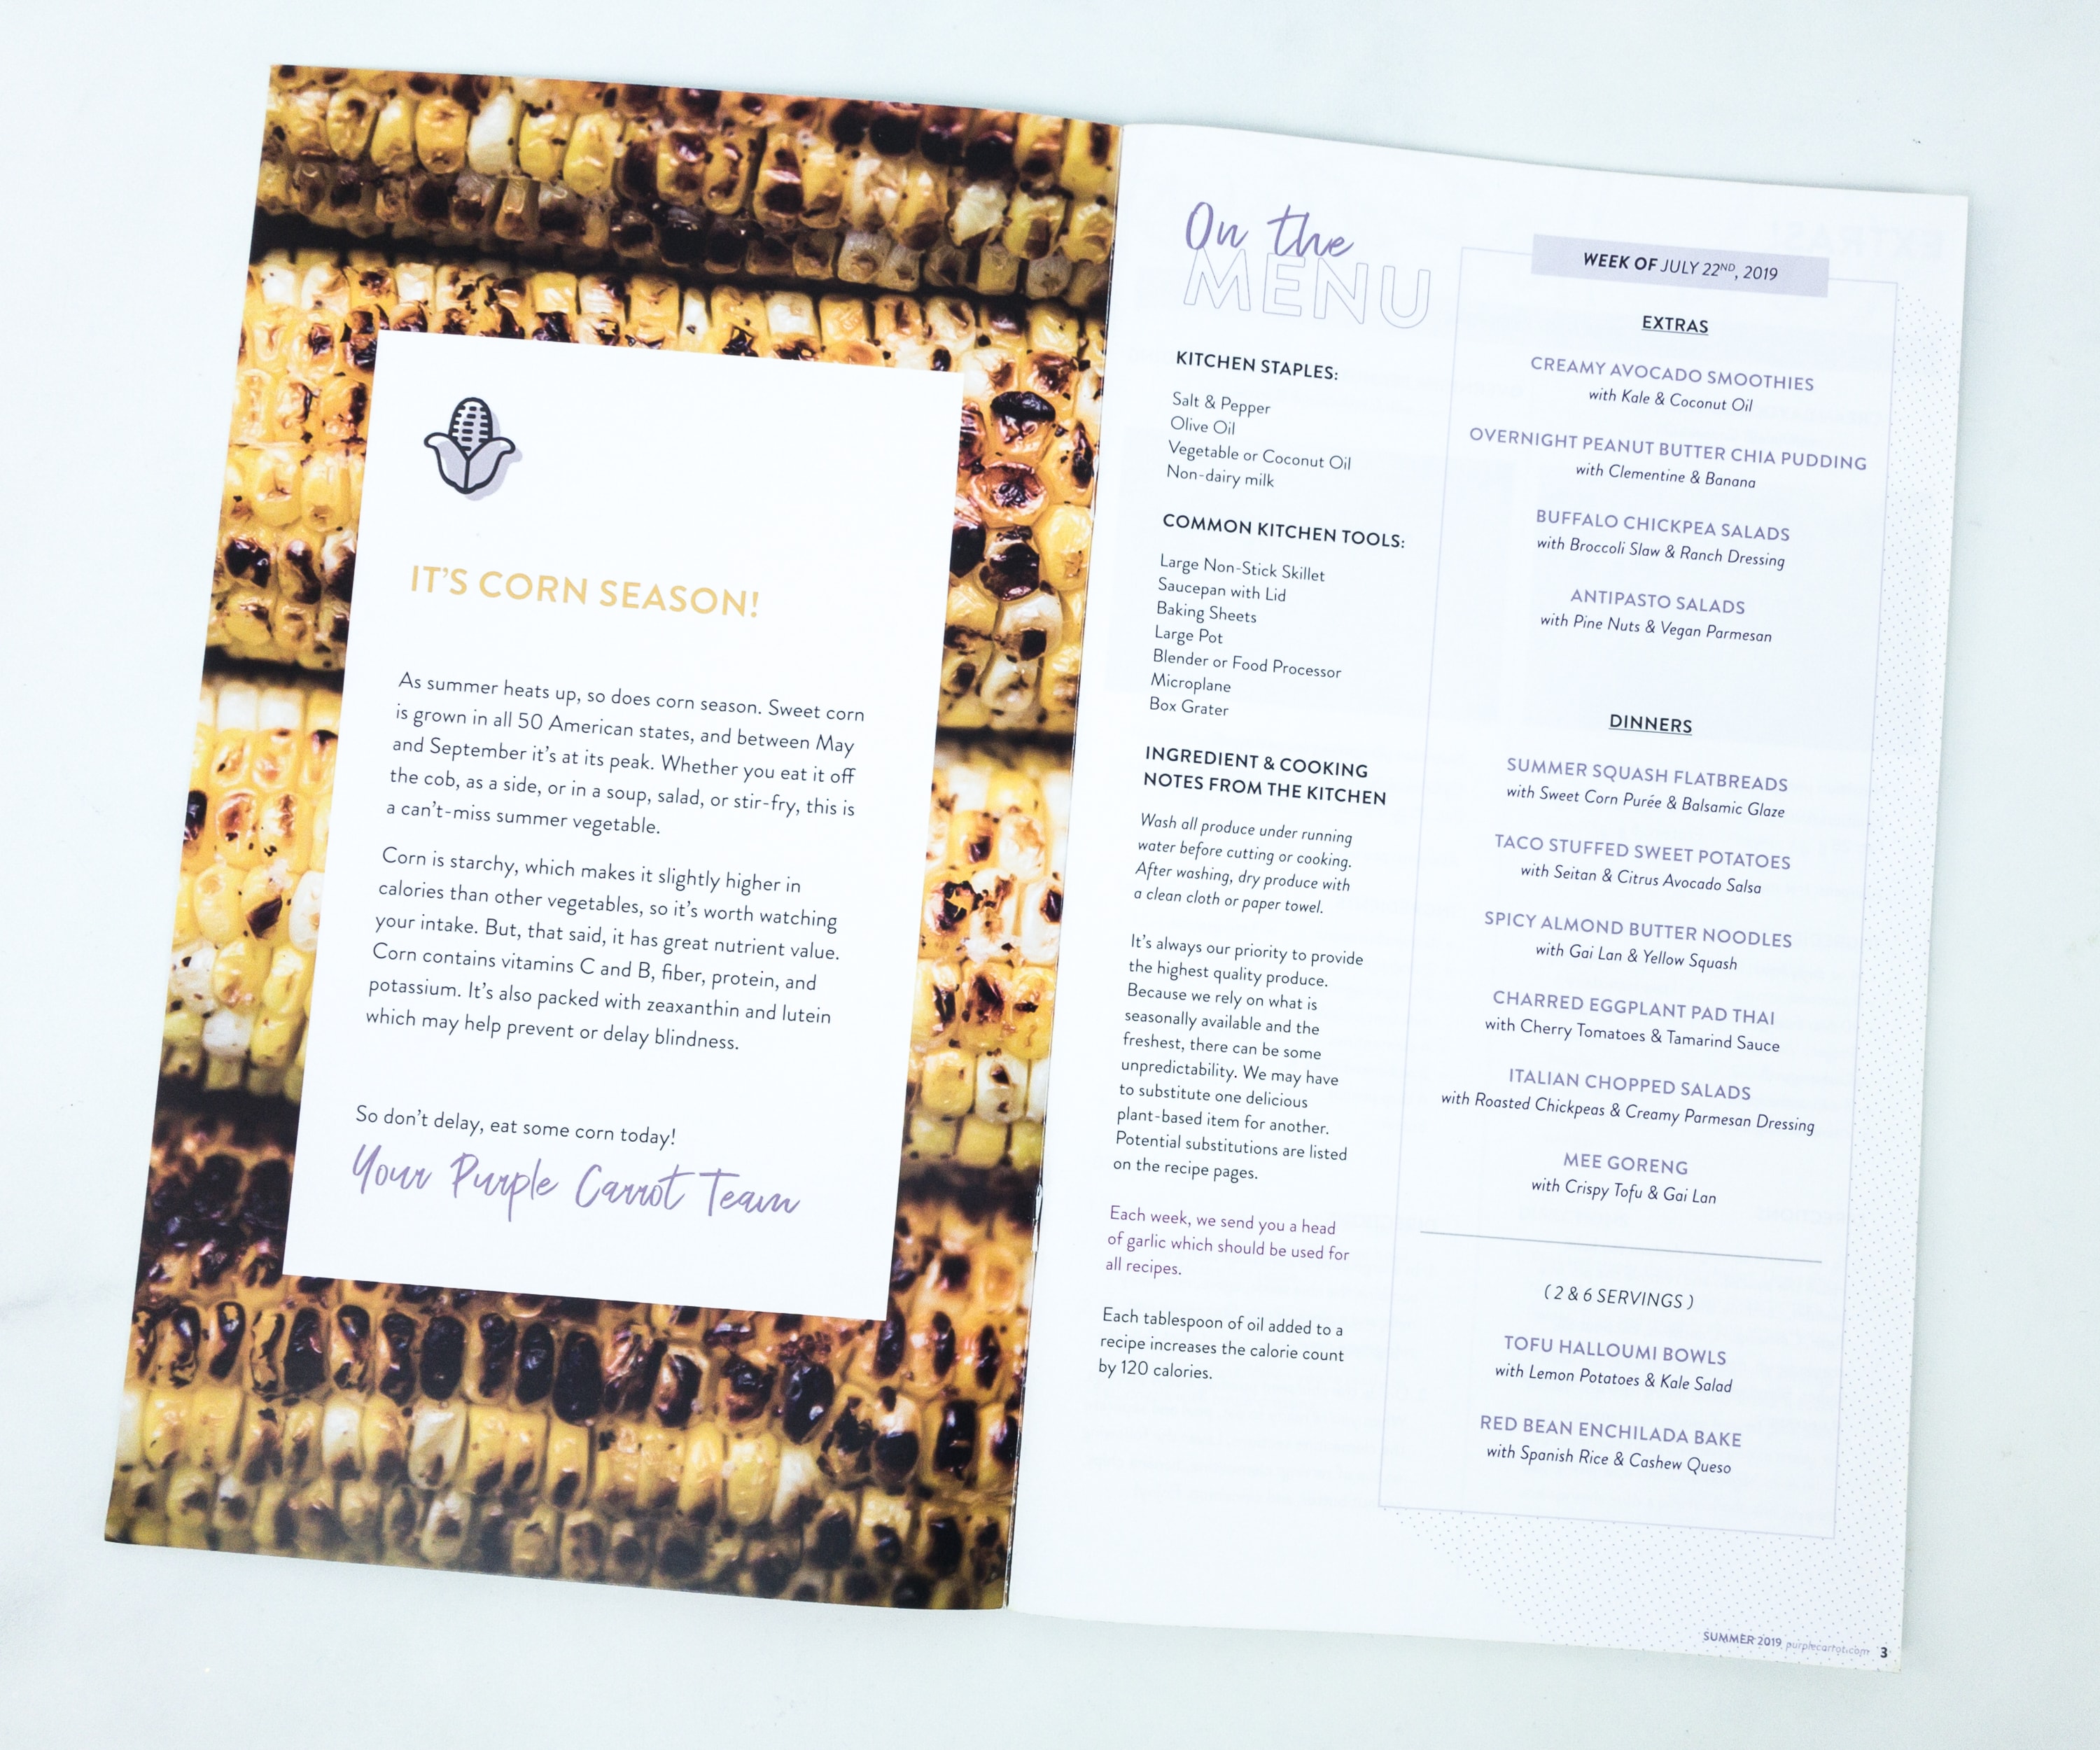 IT'S CORN SEASON!
As summer heats up, so does corn season. Sweet corn
is grown in all 50 American states, and between May
and September it's at its peak. Whether you eat it off
the cob, as a side, or in a soup, salad, or stir-fry, this is
a can't-miss summer vegetable.
Corn is starchy, which makes it slightly higher in
calories than other vegetables, so it's worth watching
your intake. But, that said, it has great nutrient value.
Corn contains vitamins C and B, fiber, protein, and
potassium. It's also packed with zeaxanthin and lutein
which may help prevent or delay blindness.
So don't delay, eat some corn today!
Your Purple Carrot Team
On the
MENU
KITCHEN STAPLES:
Salt & Pepper
Olive Oil
Vegetable or Coconut Oil
Non-dairy milk
COMMON KITCHEN TOOLS:
Large Non-Stick Skillet
Saucepan with Lid
Baking Sheets
Large Pot
Blender or Food Processor
Microplane
Box Grater
INGREDIENT & COOKING
NOTES FROM THE KITCHEN
Wash all produce under running
water before cutting or cooking.
After washing, dry produce with
a clean cloth or paper towel.
It's always our priority to provide
the highest quality produce.
Because we rely on what is
seasonally available and the
freshest, there can be some
unpredictability. We may have
to substitute one delicious
plant-based item for another.
Potential substitutions are listed
on the recipe pages.
Each week, we send you a head
of garlic which should be used for
all recipes.
Each tablespoon of oil added to a
recipe increases the calorie count
by 120 calories.
WEEK OF JULY 22ND, 2019
EXTRAS
CREAMY AVOCADO SMOOTHIES
with Kale & Coconut Oil
OVERNIGHT PEANUT BUTTER CHIA PUDDING
with Clementine & Banana
BUFFALO CHICKPEA SALADS
with Broccoli Slaw & Ranch Dressing
ANTIPASTO SALADS
with Pine Nuts & Vegan Parmesan
DINNERS
SUMMER SQUASH FLATBREADS
with Sweet Corn Purée & Balsamic Glaze
TACO STUFFED SWEET POTATOES
with Seitan & Citrus Avocado Salsa
SPICY ALMOND BUTTER NOODLES
with Gai Lan & Yellow Squash
CHARRED EGGPLANT PAD THAI
with Cherry Tomatoes & Tamarind Sauce
ITALIAN CHOPPED SALADS
with Roasted Chickpeas & Creamy Parmesan Dressing
MEE GORENG
with Crispy Tofu & Gai Lan
( 2 & 6 SERVINGS )
TOFU HALLOUMI BOWLS
with Lemon Potatoes & Kale Salad
RED BEAN ENCHILADA BAKE
with Spanish Rice & Cashew Queso
SUMMER 2019 purplecarrot.com 3